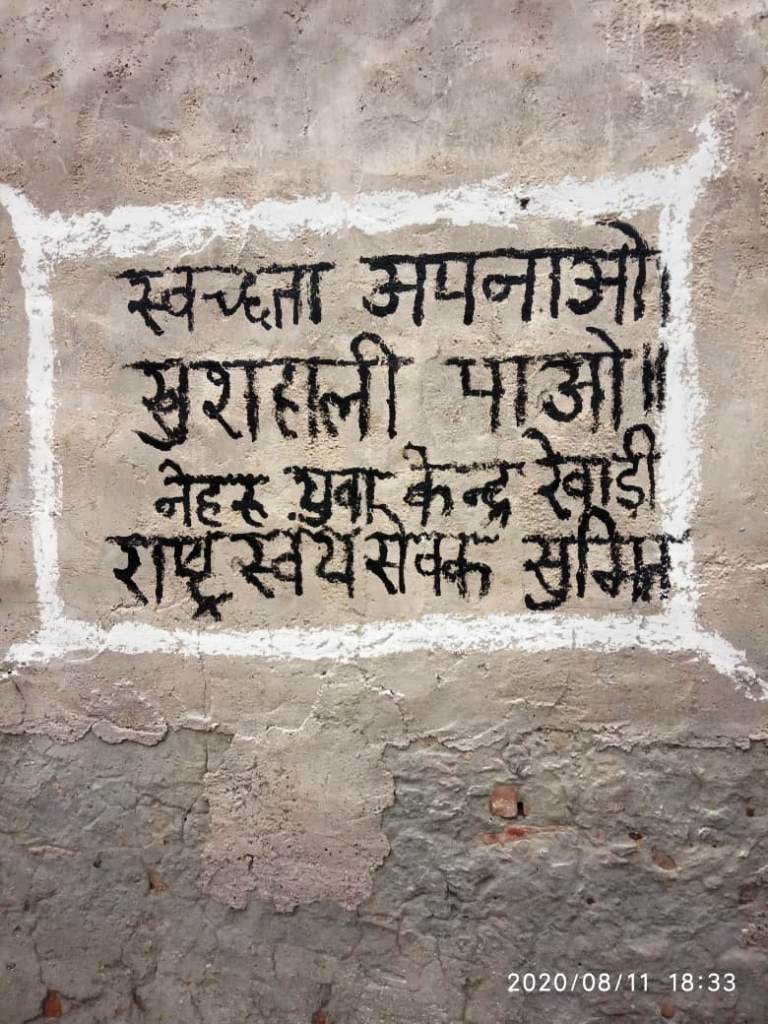 स्वच्छता अपनाओ।
खुशहाली पाओ॥
नेहरू युवा केन्द्र रेवाड़ी
राष्ट्र स्वंय सेवक सुमित
2020/08/11 18:33